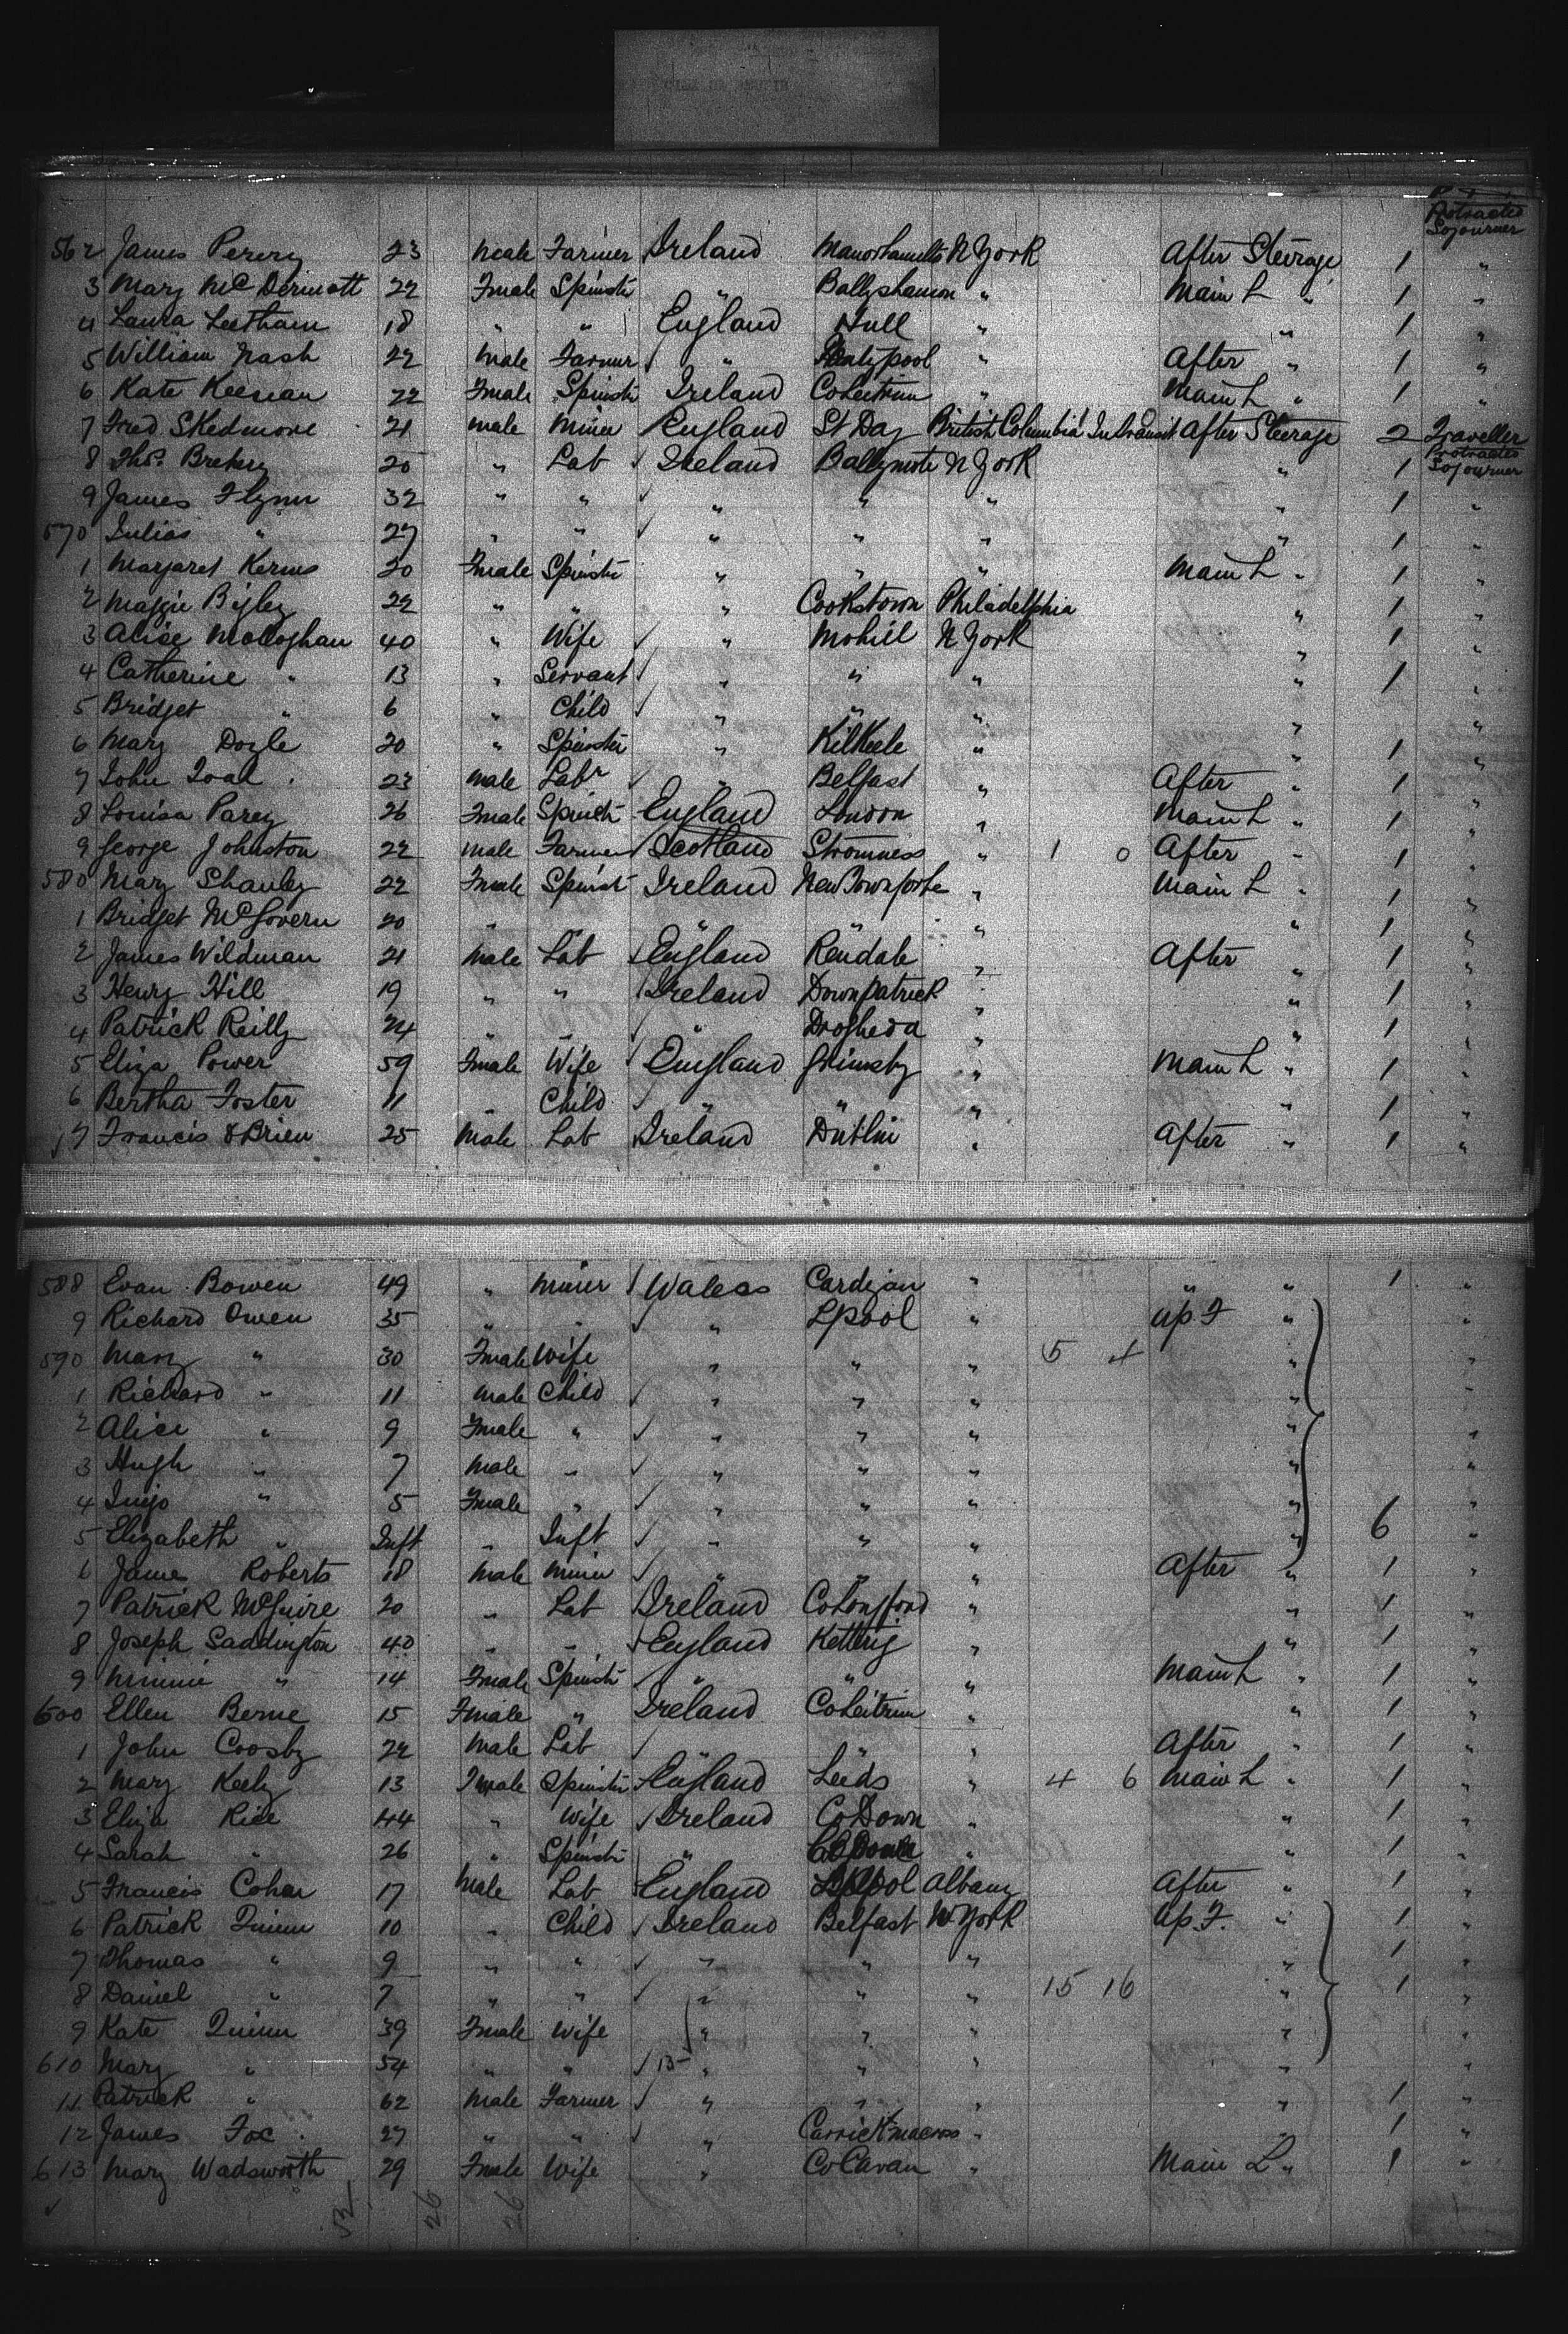 Protracted
Sojourner
562 James Perery 23 Male Farmer Ireland Manorhamilto N York After Steerage 1 "
3 Mary McDermott 22 Fmale Spinstr " Ballyshannon " Main L " 1 "
4 Laura Leetham 18 " " England Hull " " 1 "
5 William Nash 22 Male Farmer " Pontypool " After " 1 "
6 Kate Keesean 22 Fmale Spinstr Ireland CoLeitrim " Main L " 1 "
7 Fred Skedmore 21 male Miner England St Day British Columbia In transit After Steerage 2 Traveller
8 Thos. Brehery 20 " Lab Ireland Ballymote N York " 1 Protracted Sojourner
9 James Flynn 32 " " " " " " 1 "
570 Julias " 27 " " " " " " 1 "
1 Margaret Kerins 20 Fmale Spinstr " " " Main L " 1 "
2 Maggie Bigley 22 " " " Cookstown Philadelphia " 1 "
3 Alice Mologhan 40 " Wife " Mohill N York " 1 "
4 Catherine " 13 " Servant " " " " 1 "
5 Bridget " 6 " Child " " " " "
6 Mary Doyle 20 " Spinster " Kilkeele " " 1 "
7 John Toal 23 Male Labr " Belfast " After " 1 "
8 Louisa Parey 26 Fmale Spinstr England London " Main L " 1 "
9 George Johnston 22 Male Farmer Scotland Stromness " 1 0 After " 1 "
580 Mary Shanley 22 Fmale Spinstr Ireland NewTownforbe " Main L " 1 "
1 Bridget McGovern 20 " " " " " 1 "
2 James Wildman 21 Male Lab England Kendale " After " 1 "
3 Henry Hill 19 " " Ireland Downpatrick " " 1 "
4 Patrick Reilly 24 " " " Drogheda " " 1 "
5 Eliza Power 59 Fmale Wife England Grimsby " Main L " 1 "
6 Bertha Foster 11 " Child " " " " 1 "
7 Francis O'Brien 25 Male Lab Ireland Dublin " After " 1 "
588 Evan Bowen 49 " Miner Waless Cardigan " " " 1 "
9 Richard Owen 35 " " " Lpool " Up. F " "
590 Mary " 30 Fmale Wife " " " 5 4 " "
1 Richard " 11 Male Child " " " " "
2 Alice " 9 Fmale " " " " " "
3 Hugh " 7 Male " " " " " "
4 " 5 Fmale " " " " " "
5 Elizabeth " Inft " Inft " " " " 6 "
6 James Roberts 18 Male Miner " " " After " 1 "
7 Patrick McGuire 20 " Lab Ireland CoLongford " " 1 "
8 Joseph Saddington 40 " " England Kettrig " " 1 "
9 Minnie " 14 Fmale Spinstr " " " Main L " 1 "
600 Ellen Berne 15 Fmale " Ireland CoLeitrim " " 1 "
1 John Croosby 22 Male Lab " " " After " 1 "
2 Mary Keely 13 Fmale Spinster England Leeds " 4 6 Main L " 1 "
3 Eliza Rice 44 " Wife Ireland Co Down " " 1 "
4 Sarah " 26 " Spinstr " Co Down " " 1 "
5 Francis Cohen 17 Male Lab England Lpool Albany After " 1 "
6 Patrick Quinn 10 " Child Ireland Belfast N York Up. F. " 1 "
7 Thomas " 9 " " " " " " 1 "
8 Daniel " 7 " " " " " 15 16 " 1 "
9 Kate Quinn 39 Fmale Wife " " " " "
610 Mary " 54 " " 13 " " " " "
11 Patrick " 62 Male Farmer " " " " 1 "
12 James Fox 27 " " " Carrickmacross " " 1 "
613 Mary Wadsworth 29 Fmale Wife " Co Cavan " Main L " 1 "
52 26 26